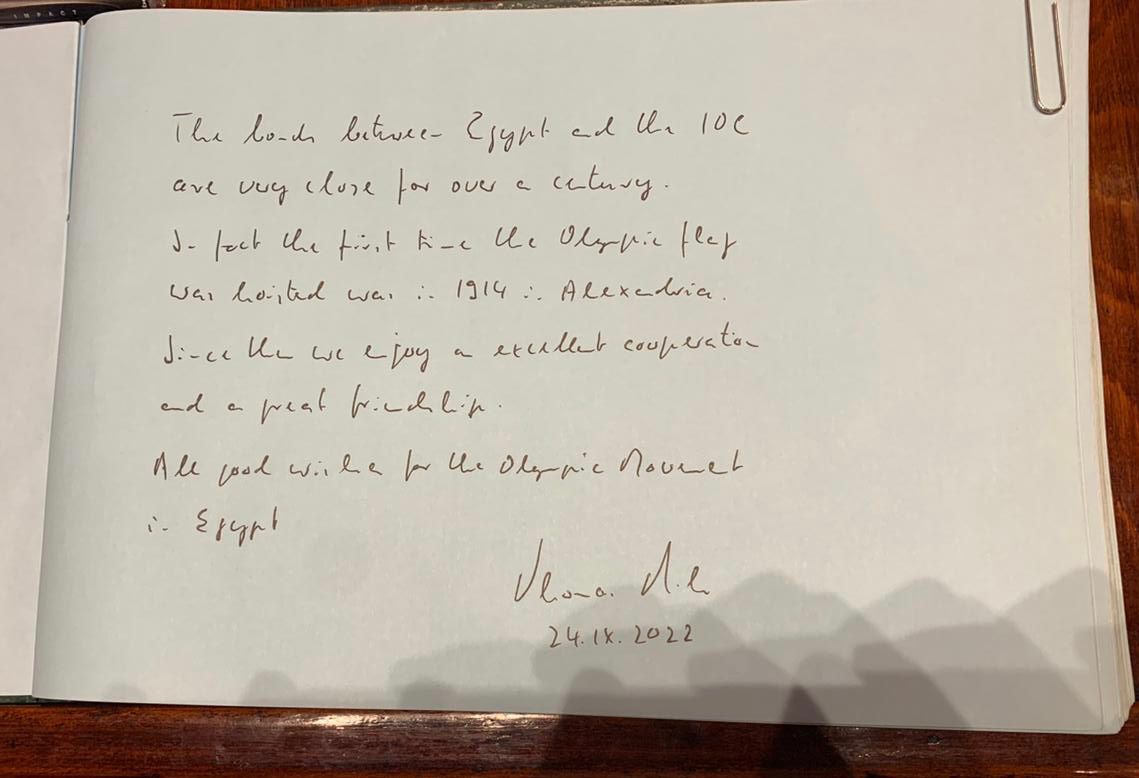 IMPACT
The bonds between Egypt and the IOC
are very close for over a century.
In fact the first time the Olympic flag
was hoisted was in 1914 in Alexandria.
Since then we enjoy an excellent cooperation
and a great friendship.
All good wishes for the Olympic Movement
in Egypt
24.IX.2022